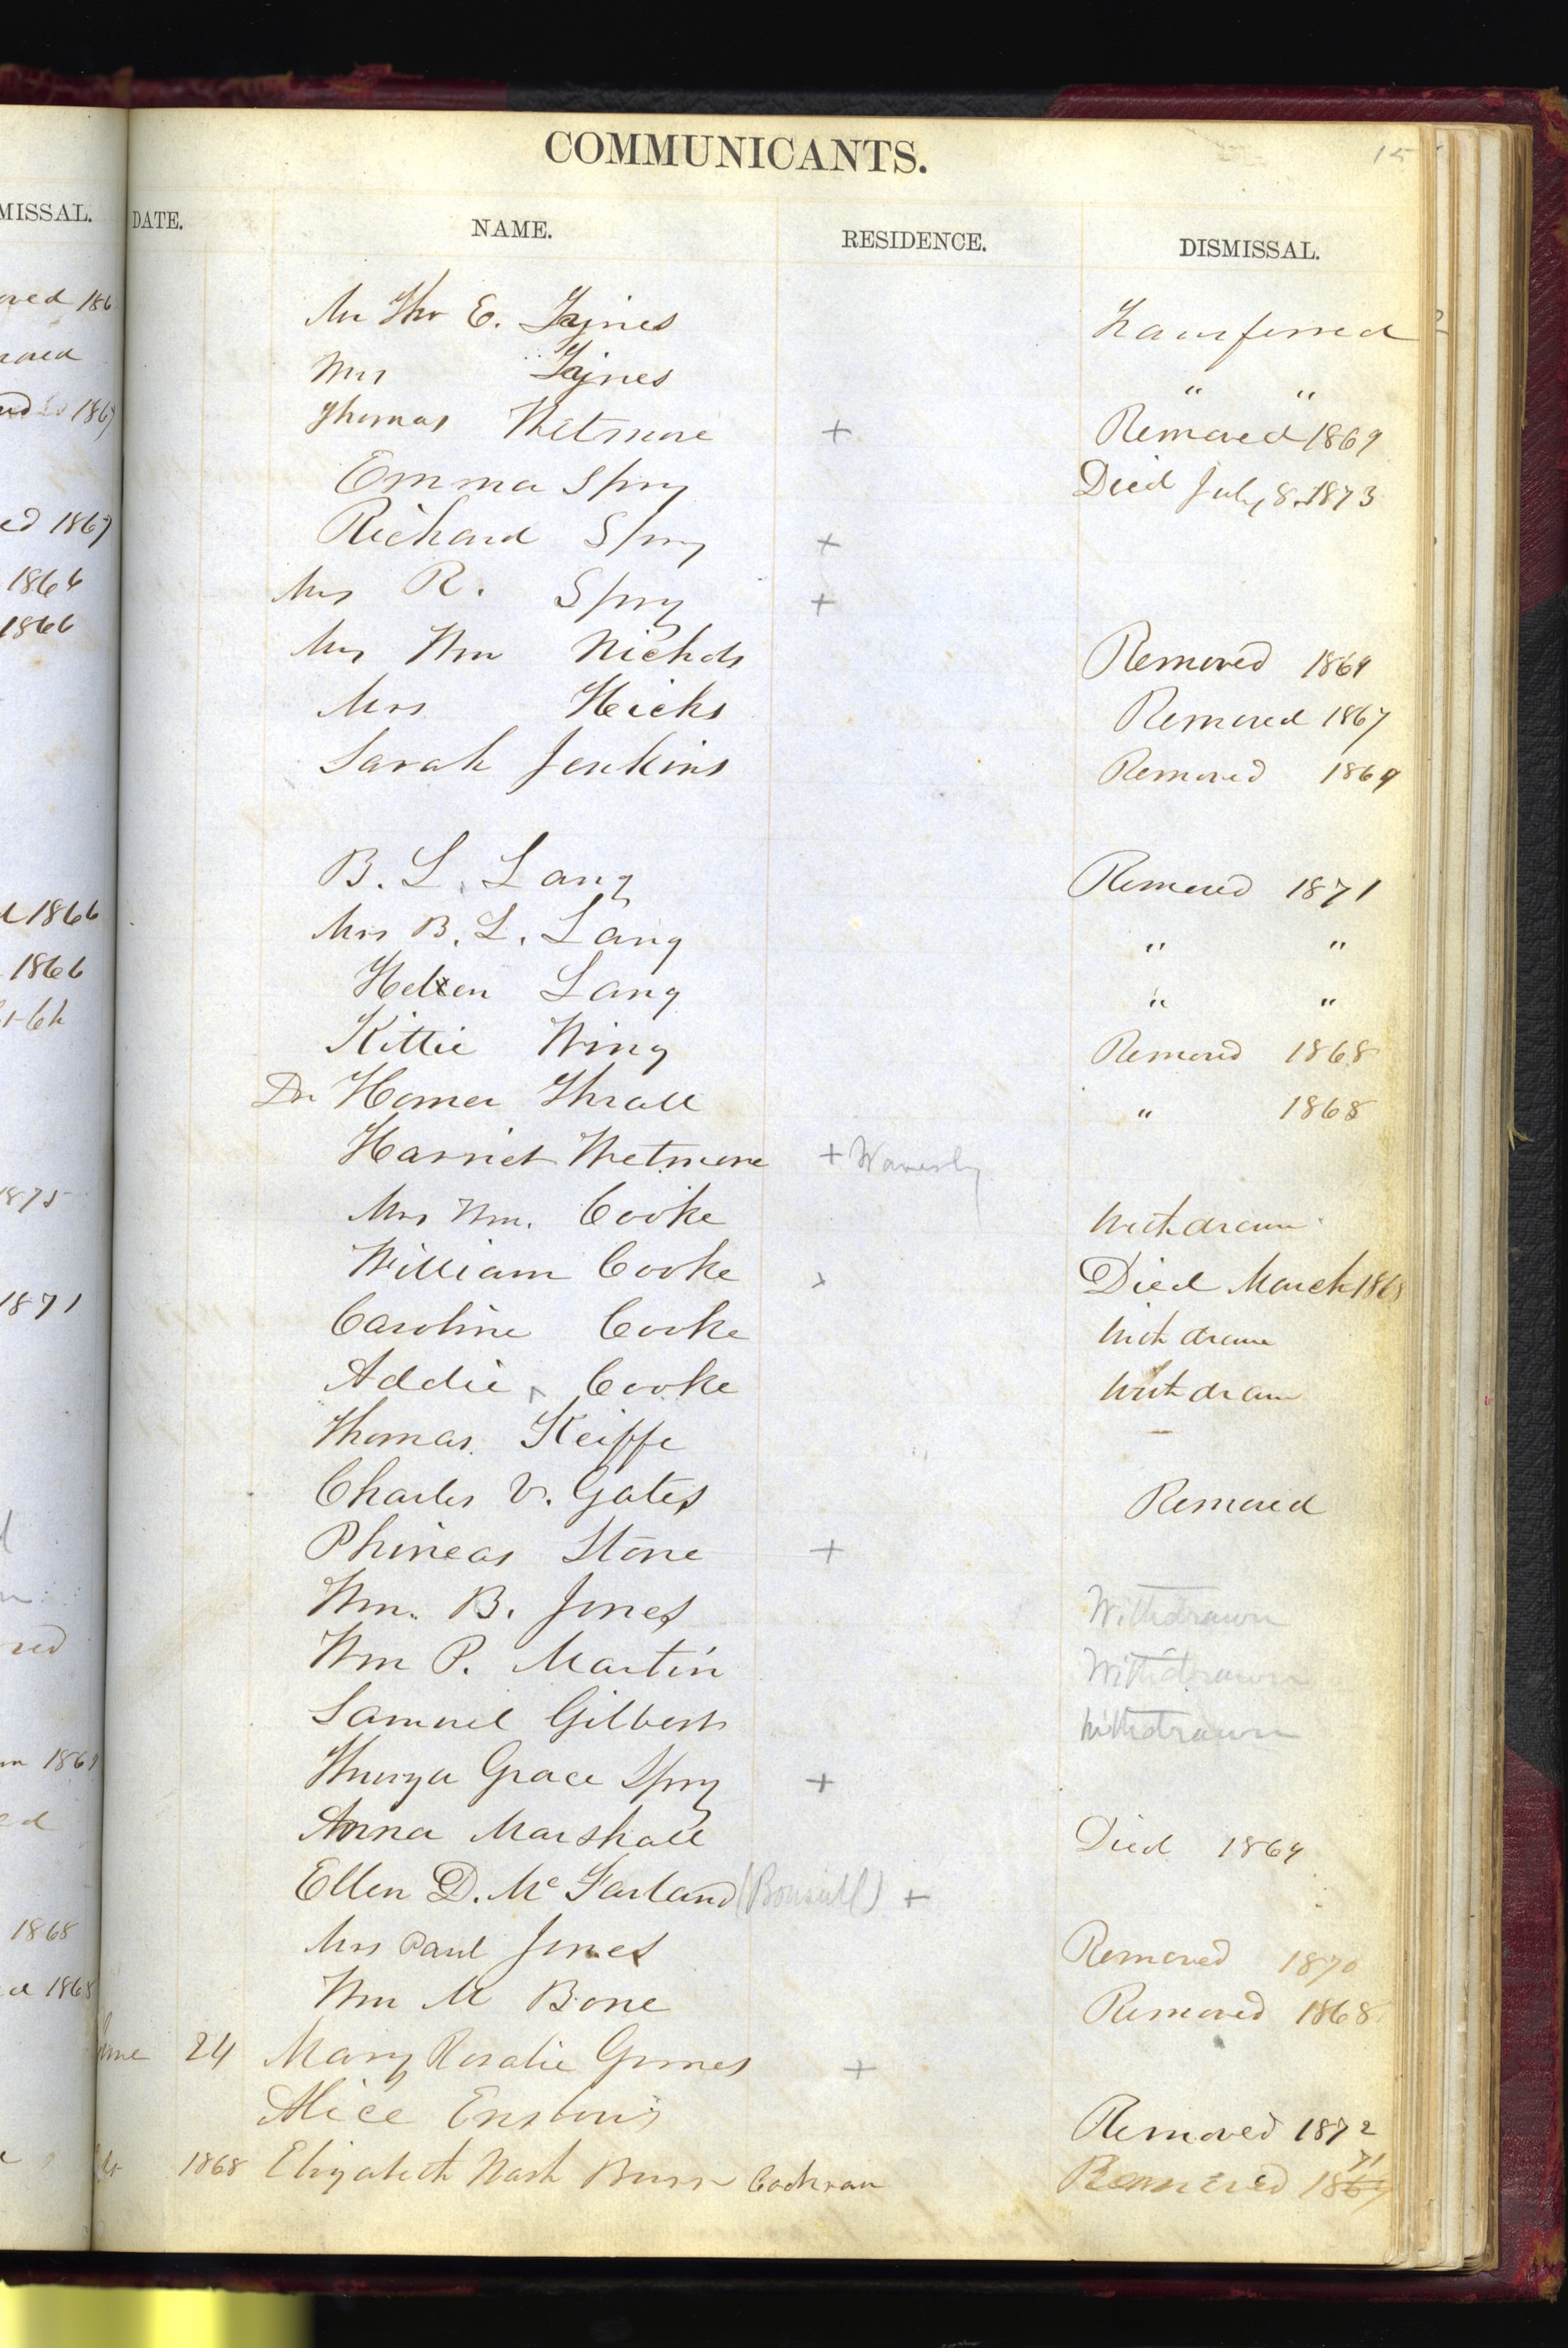 COMMUNICANTS. 15
MISSAL. DATE. NAME. RESIDENCE. DISMISSAL.
Mr Tho E. Jaynes Transferred
Mrs Jaynes " "
Thomas Wetmore + Removed 1869
Emma Spry Died July, 8. 1873
Richard Spry +
Mrs R. Spry +
Mrs Wm Nichols Removed 1869
Mrs Hicks Removed 1867
Sarah Jenkins Removed 1869
B. L. Lang Removed 1871
Mrs B. L. Lang " "
Helen Lang " "
Kittie Wing Removed 1868
Dr Homer Thrall " 1868
Harriet Wetmore + Waverly
Mrs Wm. Cooke Withdrawn
William Cooke Died March 1868
Caroline Cooke Withdrawn
Addie Cooke Withdrawn
Thomas Keiffe
Charles V. Gates Removed
Phineas Stone +
Wm. B. Jones Withdrawn
Wm P. Martin Withdrawn
Samuel Gilbert Withdrawn
Thurza Grace Spry +
Anna Marshall Died 1869
Ellen D. McFarland (Bonsall) +
Mrs Paul Jones Removed 1870
Wm M Bone Removed 1868
June 24 Mary Rosalie Grimes +
Alice Removed 1872
1868 Elizabeth Nash Burr Cochran Removed 1869 71